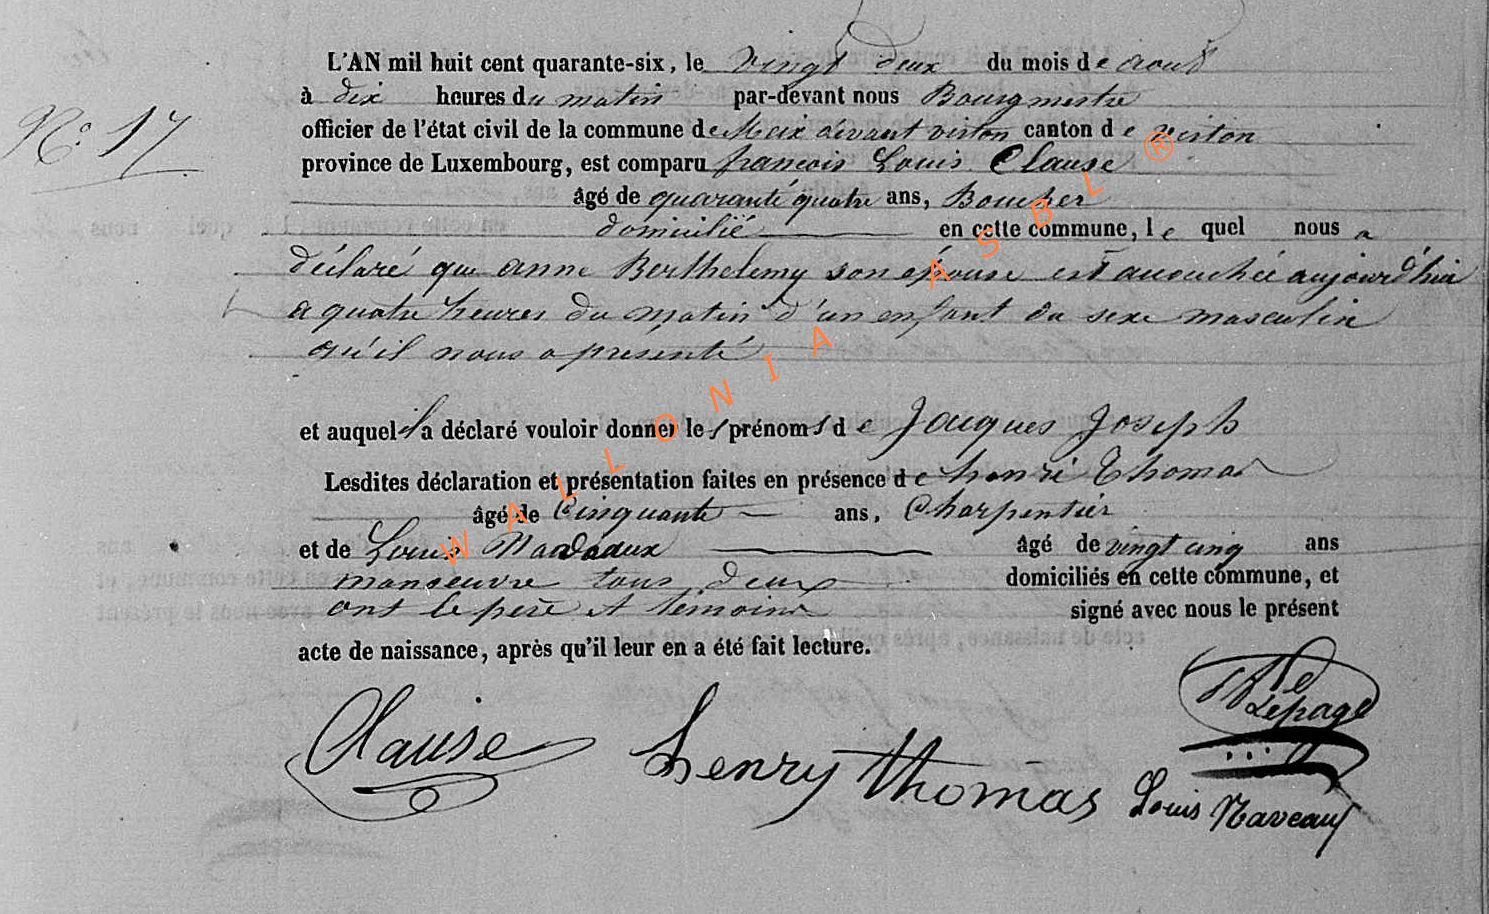 N.° 17.
L'AN mil huit cent quarante-six, le vingt deux du mois de aout
à dix heures du matin par-devant nous Bourgmestre
officier de l'état civil de la commune de Meix devant virton canton de virton
province de Luxembourg, est comparu francois Louis Clause
âgé de quarante quatre ans, Boucher
domicilié en cette commune, le quel nous a
déclaré que anne Berthelemy son épouse est accouchée aujourd'hui
a quatre heures du matin d'un enfant du sexe masculin
qu'il nous a presenté
et auquel il a déclaré vouloir donner les prénoms de Jacques Joseph
Lesdites déclaration et présentation faites en présence de henri Thomas
âgé de Cinquante ans, Charpentier
et de Louis âgé de vingt cinq ans
manoeuvre tous deux domiciliés en cette commune, et
ont le père et temoins signé avec nous le présent
acte de naissance, après qu'il leur en a été fait lecture.
Clause henry thomas Lepage
Louis Naveau
WALLONIA ASBL ®